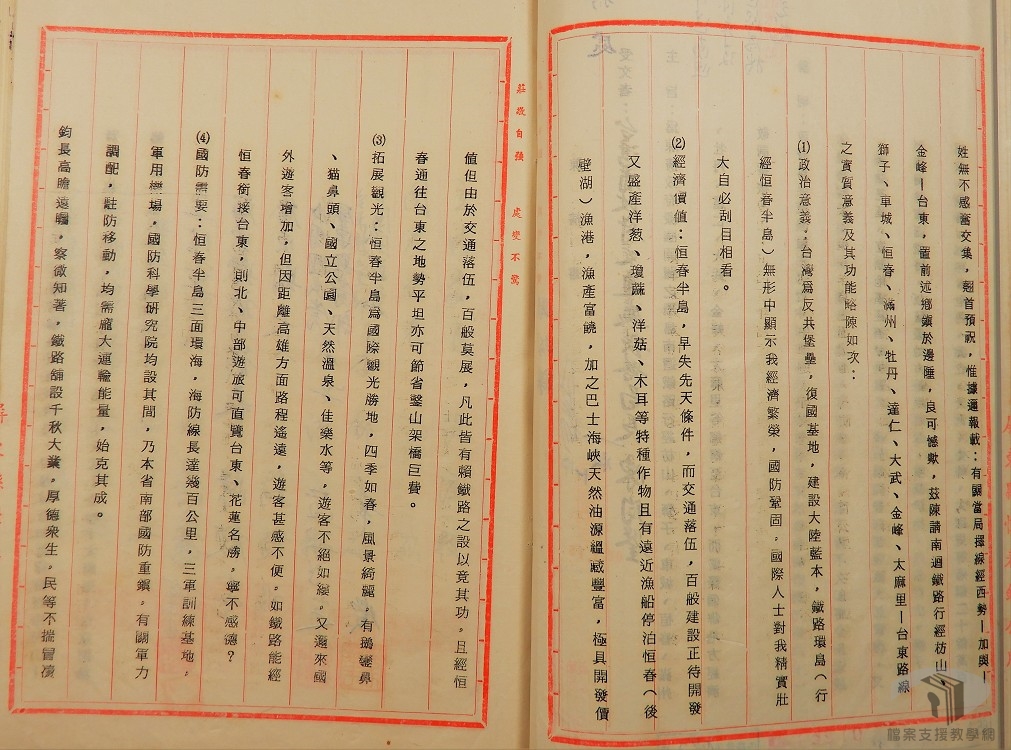 姓無不感奮交集，翹首預祝，惟據邇報載：有關當局擇線經西勢—加與—
金峰—台東，置前述鄉鎮於邊陲，良可憾歟，茲陳請南迴鐵路行經枋山、
獅子、車城、恒春、滿州、牡丹、達仁、大武、金峰、太麻里—台東路線
之實質意義及其功能略陳如次：
⑴政治意義：台灣爲反共堡壘，復國基地，建設大陸藍本，鐵路環島（行
經恒春半島）無形中顯示我經濟繁榮，國防鞏固。國際人士對我精實壯
大自必刮目相看。
⑵經濟價値：恒春半島，早失先天條件，而交通落伍，百般建設正待開發
又盛產洋葱、瓊蔴、洋菇、木耳等特種作物且有遠近漁船停泊恒春（後
壁湖）漁港，漁產富饒，加之巴士海峽天然油源縕藏豐富，極具開發價
莊敬自強　處變不驚
値但由於交通落伍，百般莫展，凡此皆有賴鐵路之設以竟其功。且經恒
春通往台東之地勢平坦亦可節省鑿山架橋巨費。
⑶拓展觀光：恒春半島爲國際觀光勝地，四季如春，風景綺麗，有鵝鑾鼻
、猫鼻頭、國立公園、天然溫泉、佳樂水等，遊客不絕如縷。又邇來國
外遊客增加，但因距離高雄方面路程遙遠，遊客甚感不便。如鐵路能經
恒春銜接台東，則北、中部遊旅可直覽台東、花蓮名勝，寧不感德？
⑷國防需要：恒春半島三面環海，海防線長達幾百公里，三軍訓練基地，
軍用機場，國防科學研究院均設其間，乃本省南部國防重鎮。有關軍力
調配，駐防移動，均需龐大運輸能量，始克其成。
鈞長高瞻遠矚，察微知著，鐵路舖設千秋大業，厚德衆生，民等不揣冒瀆
檔案支援教學網